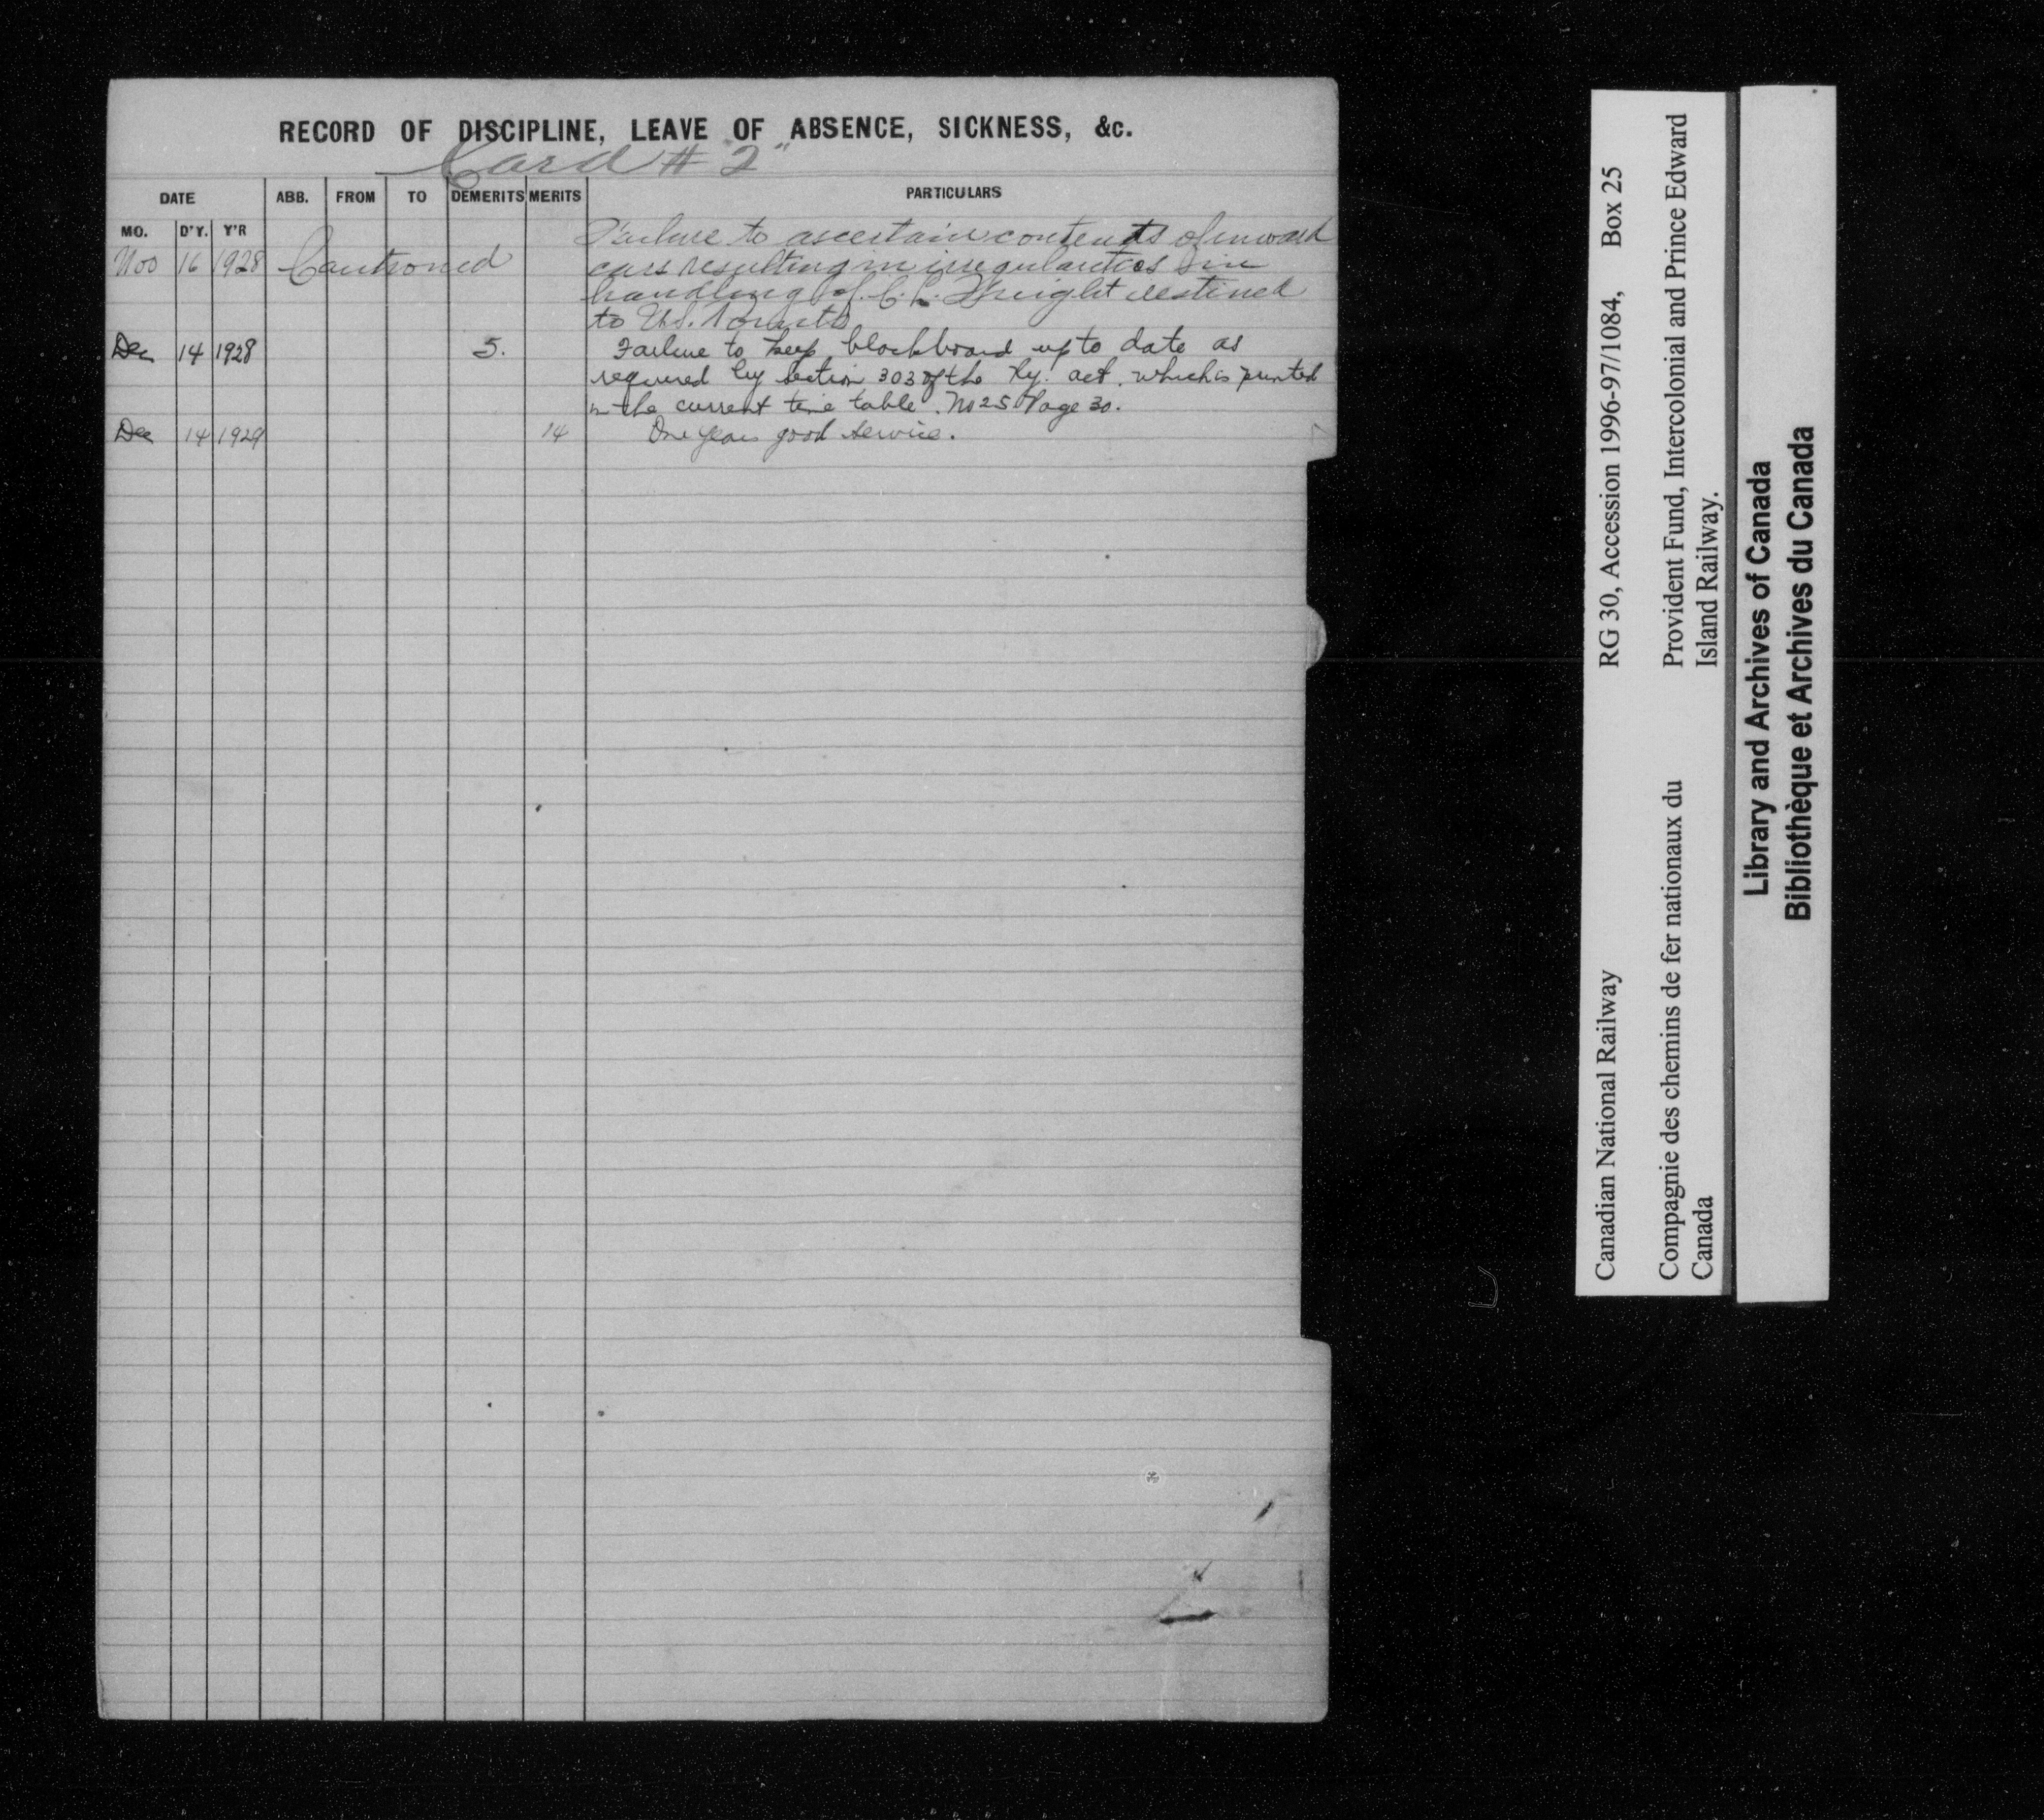 RECORD OF DISCIPLINE, LEAVE OF ABSENCE, SICKNESS, &c.
Card # "2"
DATE ABB. FROM TO DEMERITS MERITS PARTICULARS
MO. D'Y. Y'R
Failure to ascertain contents of inward
Nov 16 1928 Cautioned cars resulting in irregularities in
handling of L.C.L. Freight destined
to
Dec 14 1928 5. Failure to keep blackboard up to date as
required by section 303 of the Ry. act. which is printed
in the current time table. No 25 Page 30.
Dec 14 1929 14 One years good service.
Canadian National Railway RG 30, Accession 1996-97/1084, Box 25
Compagnie des chemins de fer nationaux du Provident Fund, Intercolonial and Prince Edward
Canada Island Railway.
Library and Archives of Canada
Bibliothèque et Archives du Canada